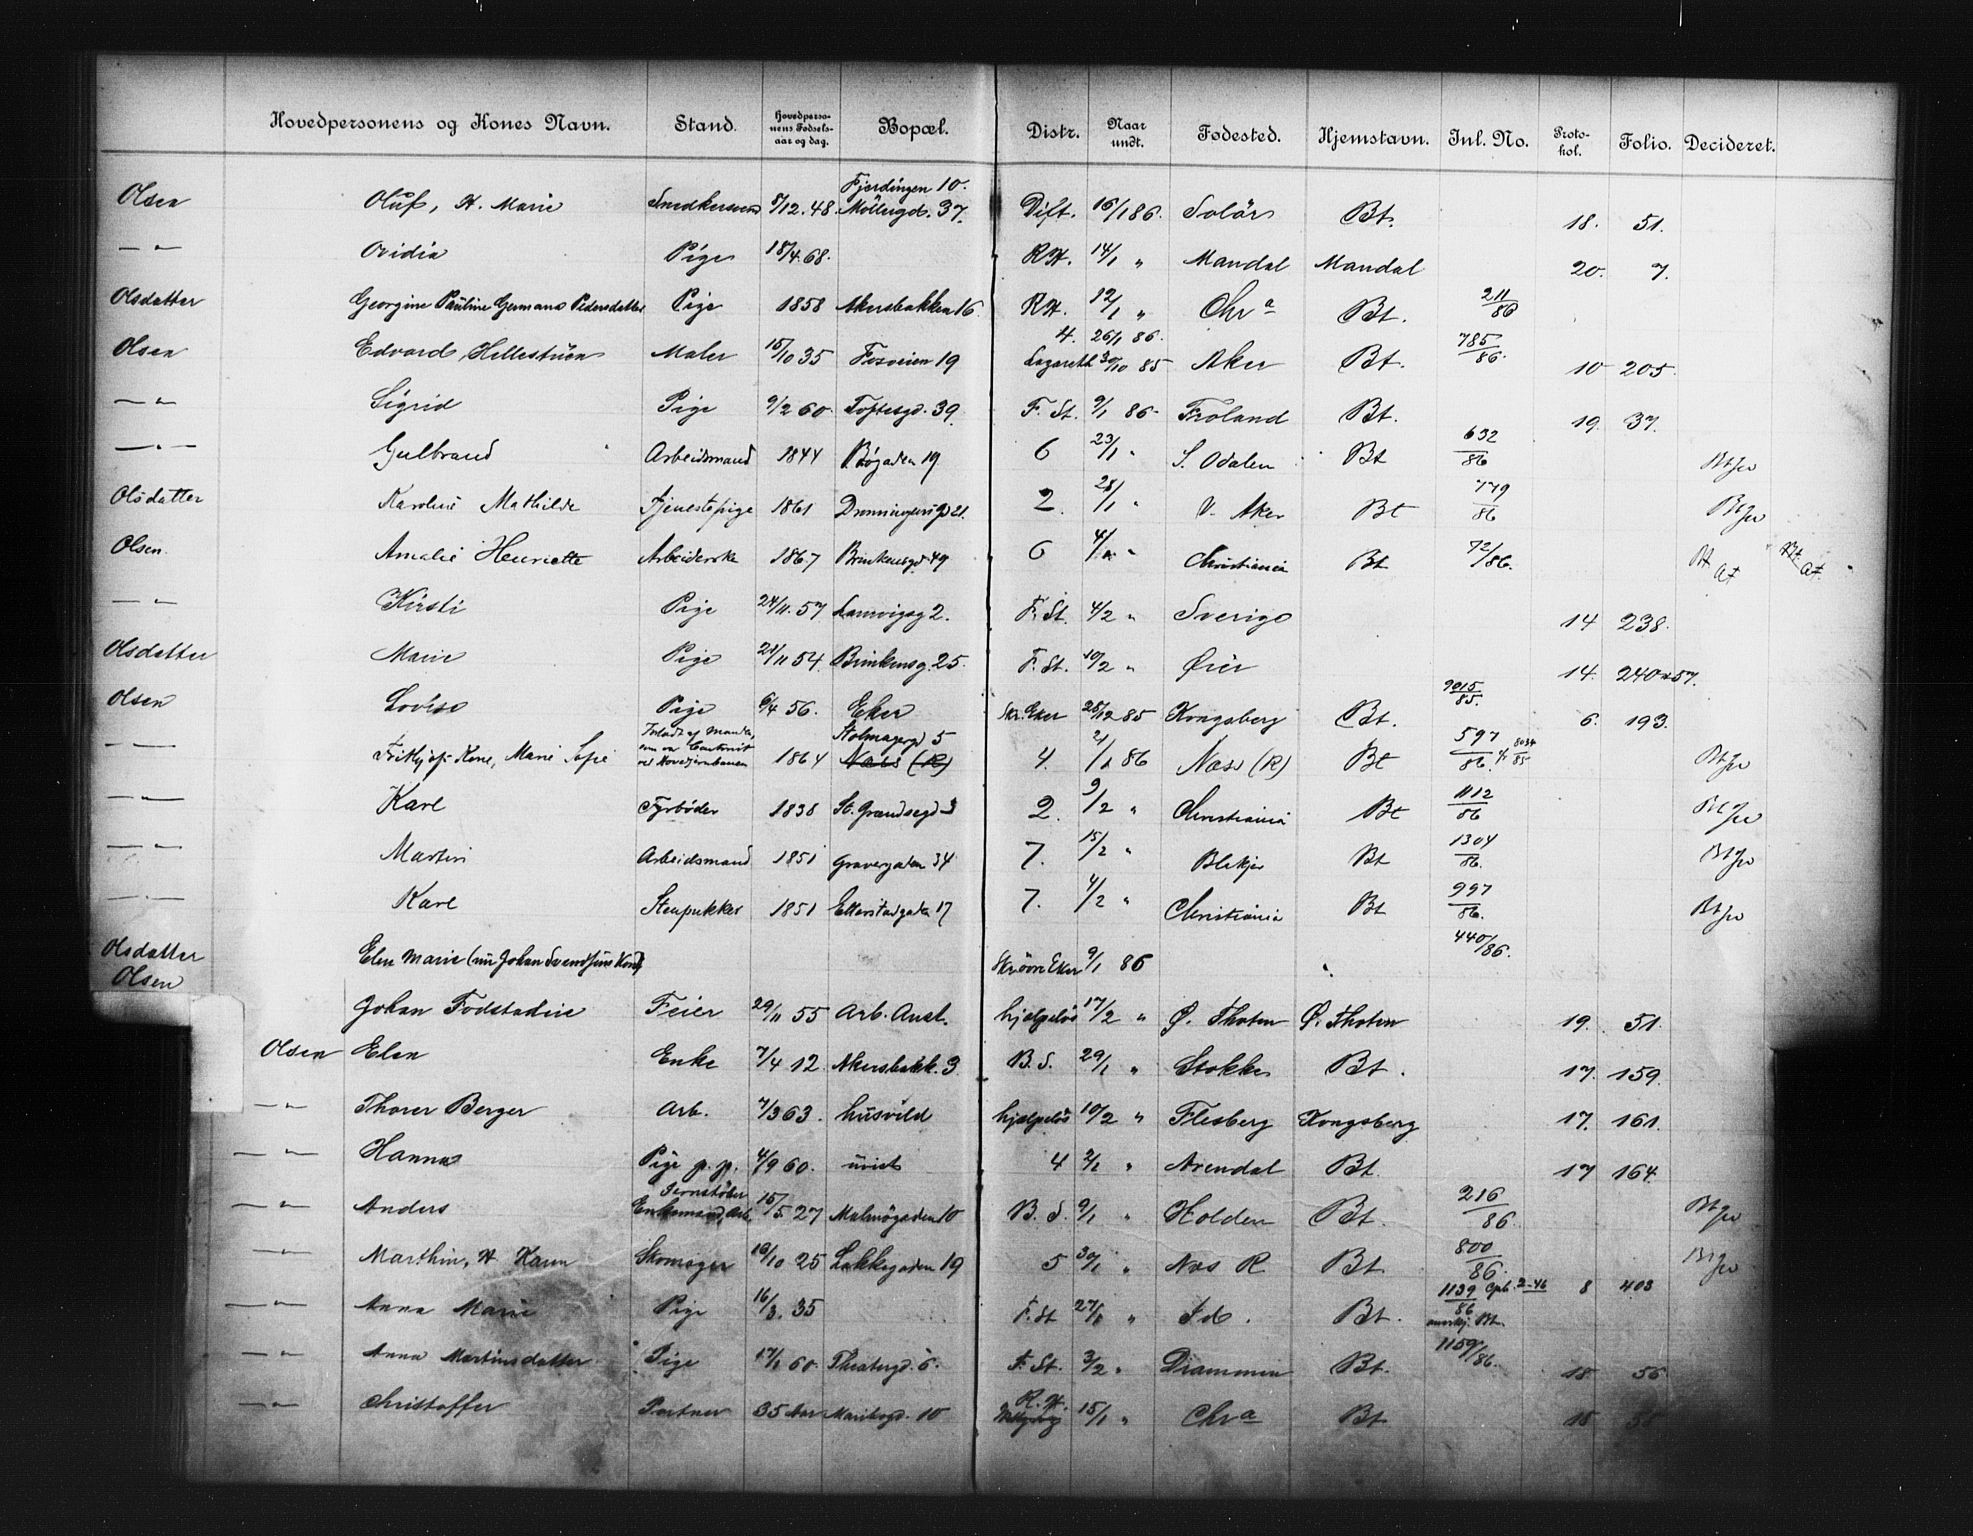 Hovedpersonens og Kones Navn. Stand. Hovedperso-nens Fødsels-aar og dag. Bopæl. Distr. Naar undt. Fødested. Hjemstavn. Inl. No. Proto-kol. Folio. Decideret.
Olsen Oluf, H. Marie Snedkersvend 5/12.48. Fjerdingen 10. Møllergd. 37. Dift. 16/1 86. Solör Bt. 18. 51.
— " — Ovidia Pige 18/4.68. RH. 14/1 " Mandal Mandal 20. 7.
Olsdatter Georgine Pauline Germane Pedersdatter Pige 1858 Akersbakken 16. RH. 12/1 " Chr a Bt. 211/86
Olsen Edvard Hellestuen Maler 15/10 35 Fosveien 19 4. 26/1 86. Lazareth 30/10 85 Aker Bt. 785/86. 10 205.
— " — Sigrid Pige 9/2 60. Toftesgd. 39. F. St. 9/1 86. Froland Bt. 19. 37.
— " — Gulbrand Arbeidsmand 1844 Bøgaden 19 6 23/1 " S. Odalen Bt 632/86 Bt
Olsdatter Karoline Mathilde Tjenestepige 1861 Dronningensgd 21. 2. 28/1 " V. Aker Bt 779/86 Bt
Olsen Amalie Henriette Arbeiderske 1867 Brinkensgd 49 6 4/1 " Christiania Bt 72/86. Bt
— " — Kirsti Pige 24/11. 57 Larvigsg 2. F. St. 4/2 " Sverige 14 238.
Olsdatter Marie Pige 21/11 54. Brinkensg. 25. F. St. 10/2 " Øier 14. 240 57.
Olsen Lovise Pige 6/4 56. Eker Skr. Eker 28/12 85 Kongsberg Bt. 9015/85. 6. 193.
— " — Frithjof Kone, Marie Sofie Forladt af Manden, som var 1864 Stolmagergd 5 Næs (R) 4. 2/1 86 Næs (R) Bt 597/86. 8034/85 Bt
— " — Karl Fyrbøder 1838 St. Grændsegd 3 2. 9/2 " Christiania Bt 1112/86 Bt
— " — Martin Arbeidsmand 1851 Gravergaden 34 7. 15/2 " Blakjer Bt 1304/86. Bt
— " — Karl Stenpukker 1851 Etterstadgaden 17 7. 4/2 " Christiania Bt 997/86. Bt
Olsdatter Elen Marie (nu Johan Svendsens Kone) Skr. Øvre Eker 9/1 86 440/86.
Olsen
Johan Fodstadeie Feier 29/11 55 Arb. Anst. hjælpeløs 17/2 " Ø. Thoten Ø. Thoten 19. 51.
Olsen Elen Enke 7/4 12. Akersbakk. 3. B. S. 29/1 " Stokke Bt. 17. 159.
— " — Thorer Berger Arb. 7/3 63. husvild hjælpeløs 10/2 " Flesberg Kongsberg 17. 161.
— " — Hanna Pige p. p. 4/9 60. uvist 4 2/1 " Arendal Bt. 17 164.
— " — Anders Jernstøber Enkemand, Arb. 15/5. 27 Malmøgaden 10 B. S. 9/1 " Holden Bt. 216/86 Bt
— " — Marthin, H. Karen Skomager 10/10 25 Lakkegaden 19 5 30/1 " Næs R Bt. 800/86.
— " — Anna Marie Pige 16/3. 35 F. St 27/1 " Id. Bt. 1139/86 2-46 8 403
— " — Anna Martinsdatter Pige 17/1 60. Theatergd. 6. F. St. 3/2 " Drammen Bt. 1159/86. 18 56
— " — Christoffer Portner 35 Aar Maribogd. 10 R. H. 15/1 " Chr a Bt 18